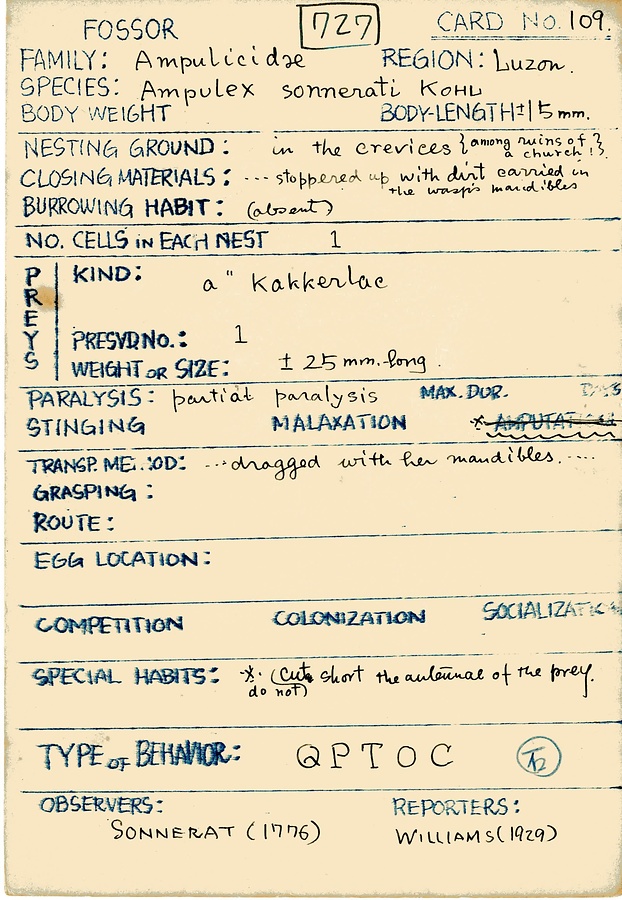 FOSSOR 727 CARD No. 109.
FAMILY: Ampulicidae REGION: Luzon.
SPECIES: Ampulex sonnerati KOHL
BODY WEIGHT BODY-LENGTH ± 15 mm.
NESTING GROUND: in the crevices {among ruins of a church!}.
CLOSING MATERIALS: --- stoppered up with dirt carried in the wasp's mandibles
BURROWING HABIT: (absent)
NO. CELLS in EACH NEST 1
PREYS
KIND: a " Kakkerlac
PRESVD NO.: 1
WEIGHT or SIZE: ± 25 mm. long.
PARALYSIS: partial paralysis MAX. DUR. DAYS
STINGING MALAXATION * AMPUTATION
TRANSP. ME. OD: ---dragged with her mandibles.----
GRASPING:
ROUTE:
EGG LOCATION:
COMPETITION COLONIZATION SOCIALIZATION
SPECIAL HABITS: * (Cut short the antennae of the prey.
do not)
TYPE OF BEHAVIOR: QPTOC
OBSERVERS: REPORTERS:
SONNERAT (1776) WILLIAMS (1929)